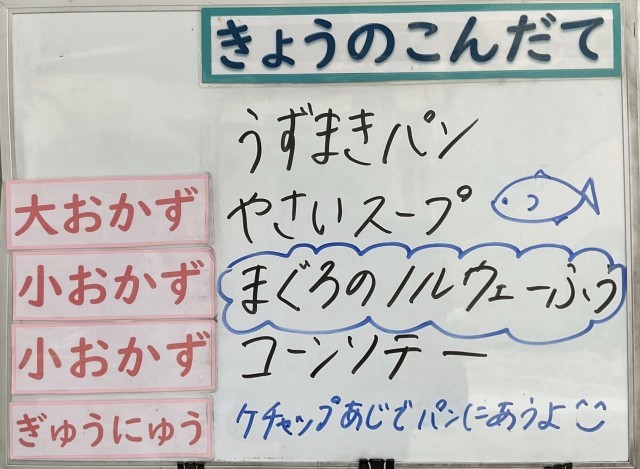 きょうのこんだて
うずまきパン
大おかず やさいスープ
小おかず まぐろのノルウェーふう
小おかず コーンソテー
ぎゅうにゅう ケチャップあじでパンにあうよ